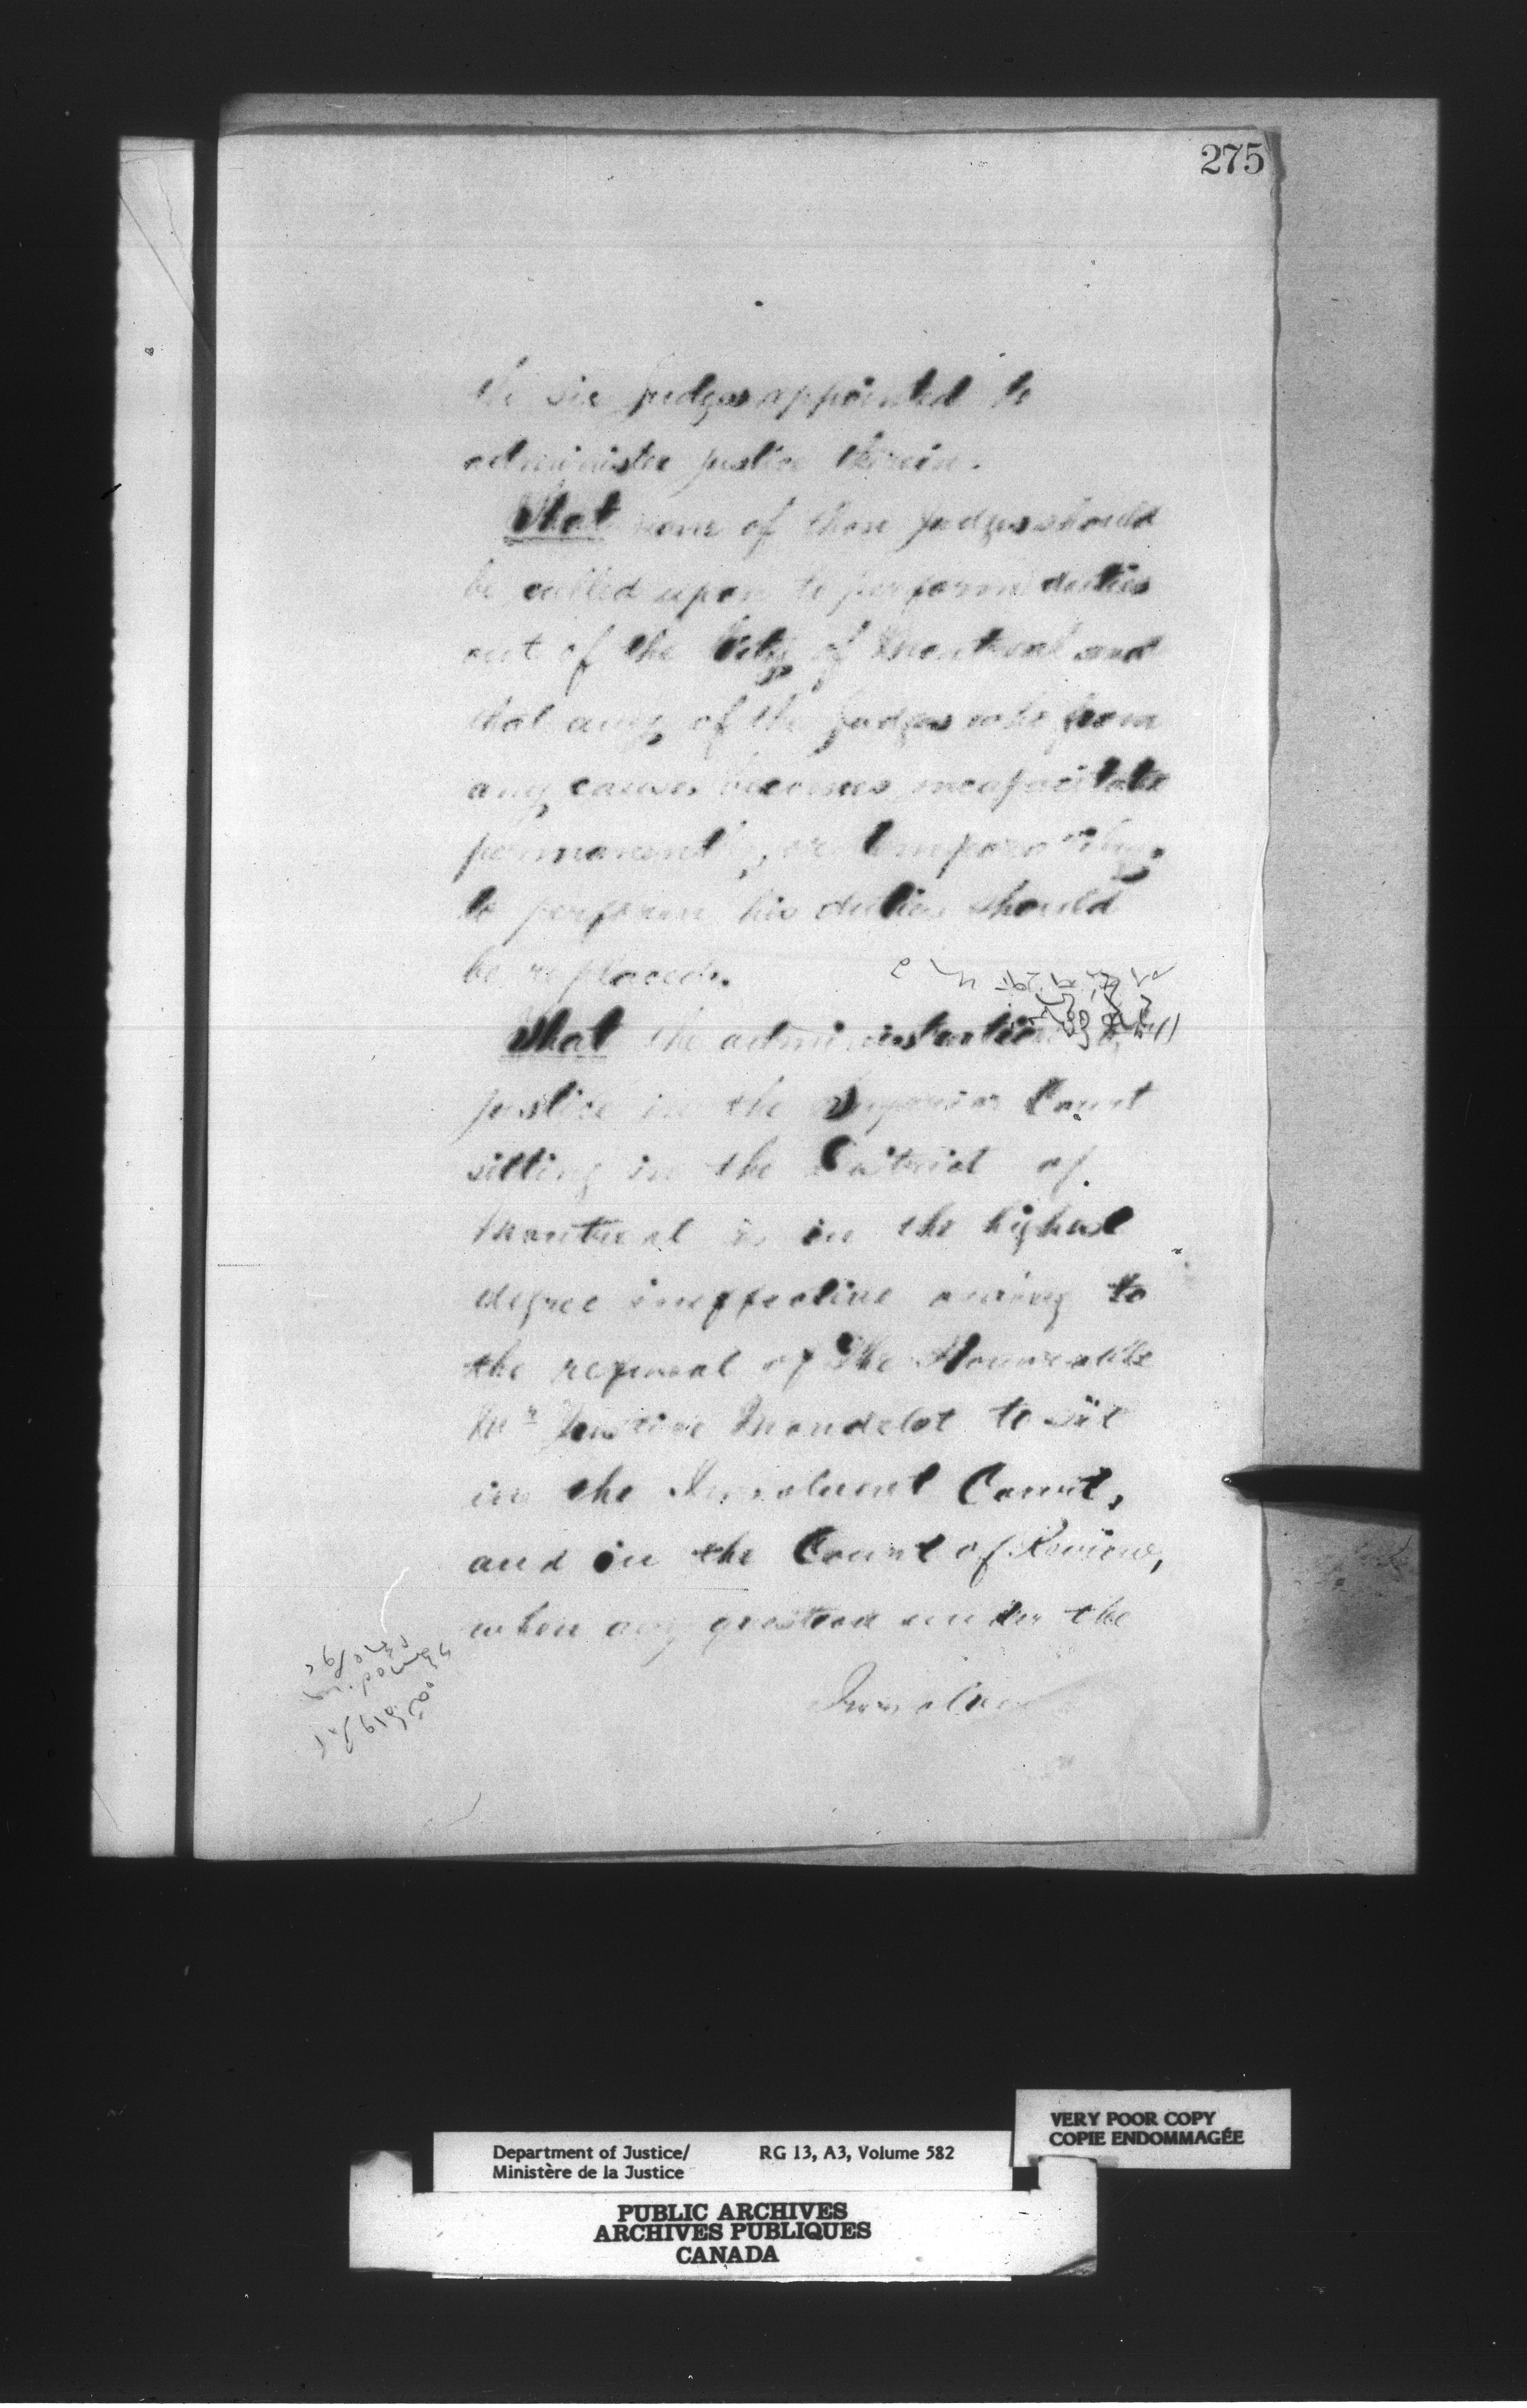 275
the six Judges appointed to
administer justice therein.
That none of those Judges should
be called upon to perform duties
out of the City of Montreal and
that any of the Judges who from
any causes becomes incapacitate
permanently, or temporarily,
to perform his duties should
be replaced.
That the administration of
justice in the Superior Court
sitting in the District of
Montreal is in the highest
degree ineffective owing to
the refusal of The Honorable
Mr Justice Mondelet to sit
in the Insolvent Court,
and in the Court of Review,
when any question under the
Insolvent
VERY POOR COPY
COPIE ENDOMMAGÉE
Department of Justice/ RG 13, A3, Volume 582
Ministère de la Justice
PUBLIC ARCHIVES
ARCHIVES PUBLIQUES
CANADA